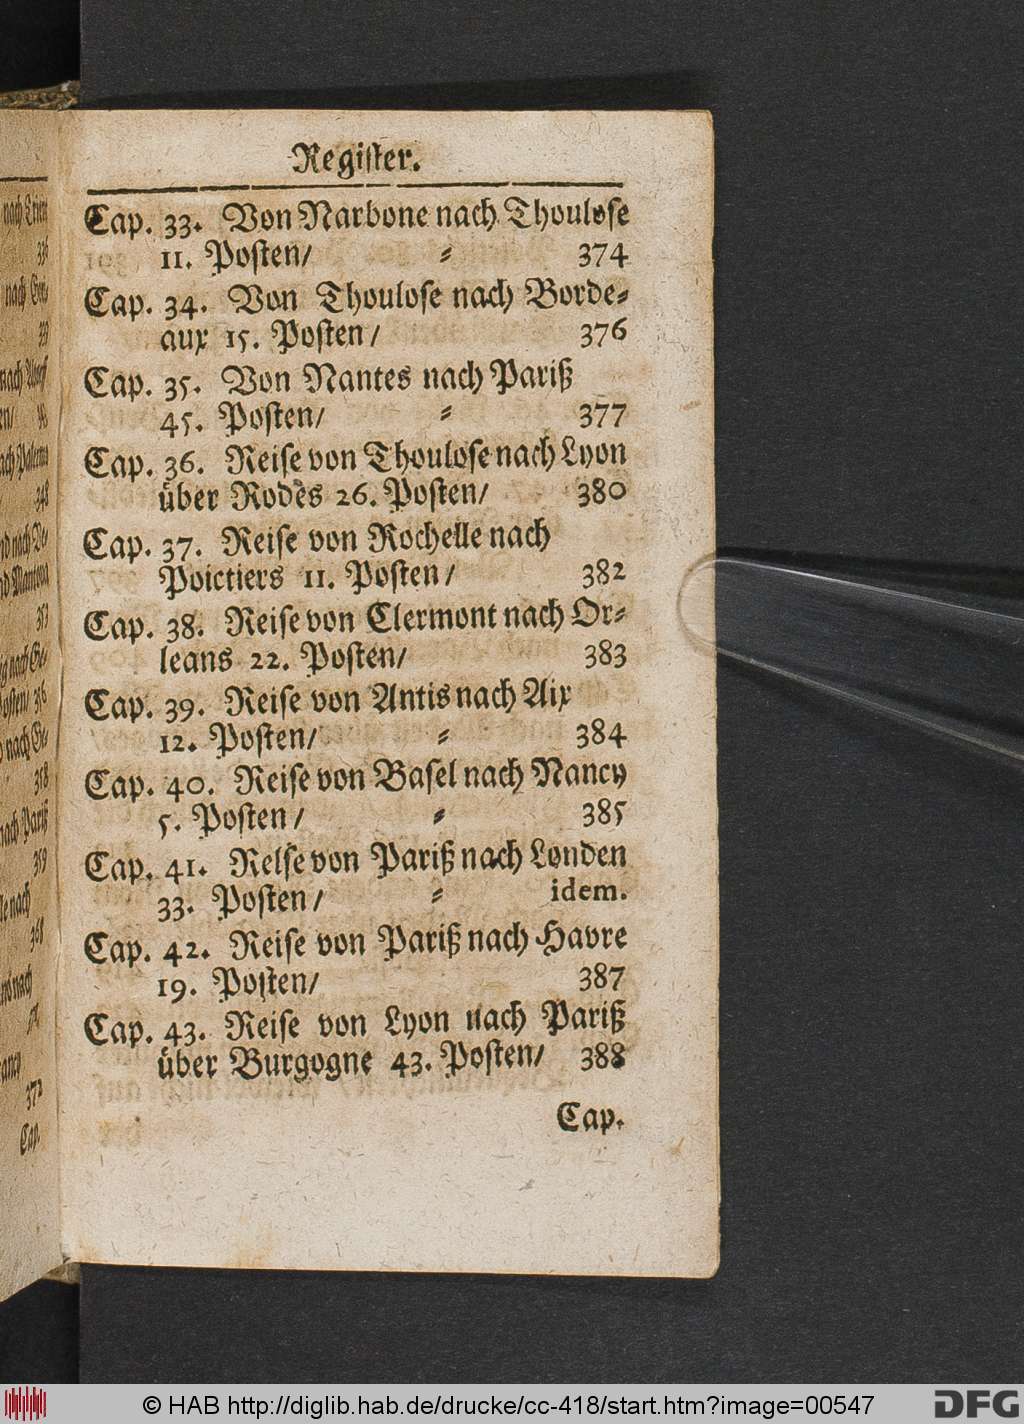 Register.
Cap. 33. Von Narbone nach Thoulose
11. Posten/ ⸗ 374
Cap. 34. Von Thoulose nach Borde⸗
aux 15. Posten/ 376
Cap. 35. Von Nantes nach Pariß
45. Posten/ ⸗ 377
Cap. 36. Reise von Thoulose nach Lyon
über Rodès 26. Posten/ 380
Cap. 37. Reise von Rochelle nach
Poictiers 11. Posten/ 382
Cap. 38. Reise von Clermont nach Or⸗
leans 22. Posten/ 383
Cap. 39. Reise von Antis nach Aix
12. Posten/ ⸗ 384
Cap. 40. Reise von Basel nach Nancy
5. Posten/ ⸗ 385
Cap. 41. Relse von Pariß nach Londen
33. Posten/ ⸗ idem.
Cap. 42. Reise von Pariß nach Havre
19. Posten/ 387
Cap. 43. Reise von Lyon nach Pariß
über Burgogne 43. Posten/ 388
Cap.
© HAB http://diglib.hab.de/drucke/cc-418/start.htm?image=00547
DFG